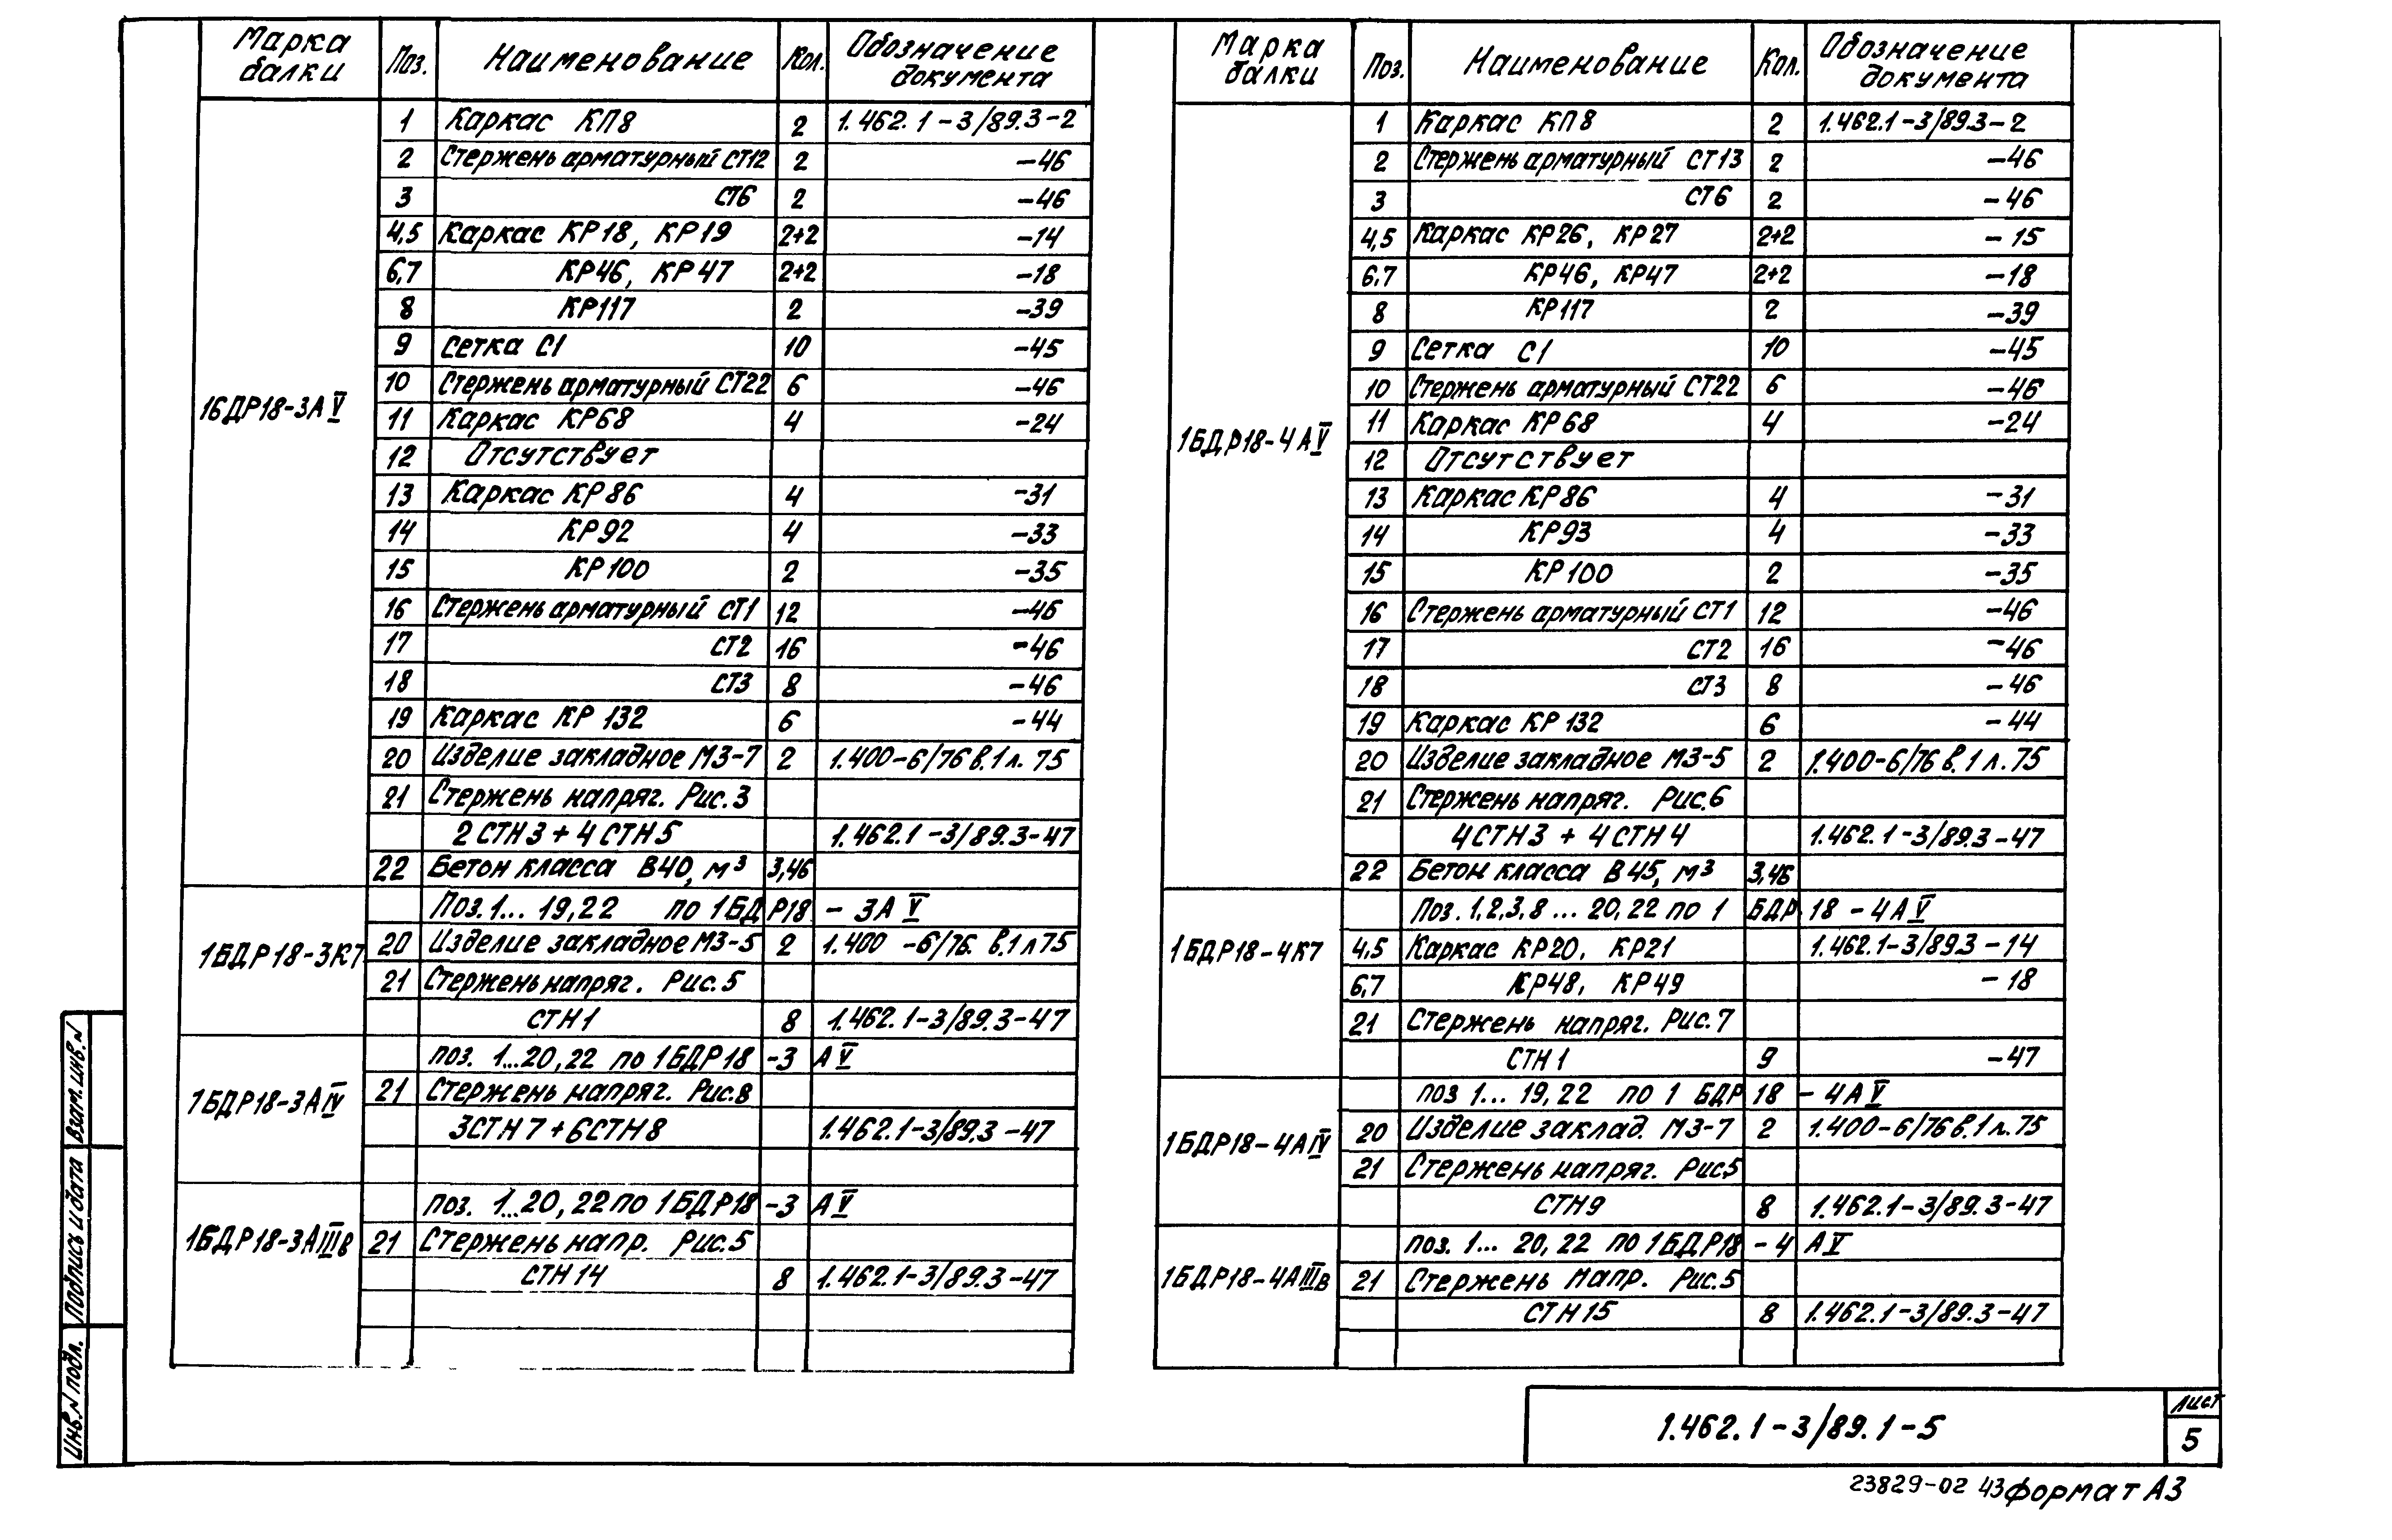 Марка балки | Поз. | Наименование | Кол. | Обозначение документа
1БДР18-3АV
1 | Каркас КП8 | 2 | 1.462.1-3/89.3-2
2 | Стержень арматурный СТ12 | 2 | -46
3 | СТ6 | 2 | -46
4,5 | Каркас КР18, КР19 | 2+2 | -14
6,7 | КР46, КР47 | 2+2 | -18
8 | КР117 | 2 | -39
9 | Сетка С1 | 10 | -45
10 | Стержень арматурный СТ22 | 6 | -46
11 | Каркас КР68 | 4 | -24
12 | Отсутствует
13 | Каркас КР86 | 4 | -31
14 | КР92 | 4 | -33
15 | КР100 | 2 | -35
16 | Стержень арматурный СТ1 | 12 | -46
17 | СТ2 | 16 | -46
18 | СТ3 | 8 | -46
19 | Каркас КР132 | 6 | -44
20 | Изделие закладное МЗ-7 | 2 | 1.400-6/76 в.1 л. 75
21 | Стержень напряг. Рис.3
2СТН3 + 4СТН5 | 1.462.1-3/89.3-47
22 | Бетон класса В40, м³ | 3,46
1БДР18-3К7
Поз.1... 19,22 по 1БДР18 - 3АV
20 | Изделие закладное МЗ-5 | 2 | 1.400 -6/76. в.1 л 75
21 | Стержень напряг. Рис. 5
СТН1 | 8 | 1.462.1-3/89.3-47
1БДР18-3АIV
поз. 1...20,22 по 1БДР18 -3 АV
21 | Стержень напряг. Рис.8
3СТН7+6СТН8 | 1.462.1-3/89.3-47
1БДР18-3АIIIв
поз. 1...20,22 по 1БДР18 -3 АV
21 | Стержень напр. Рис.5
СТН14 | 8 | 1.462.1-3/89.3-47
Марка балки | Поз. | Наименование | Кол. | Обозначение документа
1БДР18-4АV
1 | Каркас КП8 | 2 | 1.462.1-3/89.3-2
2 | Стержень арматурный СТ13 | 2 | -46
3 | СТ6 | 2 | -46
4,5 | Каркас КР26, КР27 | 2+2 | -15
6,7 | КР46, КР47 | 2+2 | -18
8 | КР117 | 2 | -39
9 | Сетка С1 | 10 | -45
10 | Стержень арматурный СТ22 | 6 | -46
11 | Каркас КР68 | 4 | -24
12 | Отсутствует
13 | Каркас КР86 | 4 | -31
14 | КР93 | 4 | -33
15 | КР100 | 2 | -35
16 | Стержень арматурный СТ1 | 12 | -46
17 | СТ2 | 16 | -46
18 | СТ3 | 8 | -46
19 | Каркас КР132 | 6 | -44
20 | Изделие закладное МЗ-5 | 2 | 1.400-6/76 в.1 л.75
21 | Стержень напряг. Рис.6
4СТН3 + 4СТН4 | 1.462.1-3/89.3-47
22 | Бетон класса В45, м³ | 3,46
1БДР18-4К7
Поз. 1,2,3,8 ... 20,22 по 1 БДР 18 - 4АV
4,5 | Каркас КР20, КР21 | 1.462.1-3/89.3 -14
6,7 | КР48, КР49 | -18
21 | Стержень напряг. Рис.7
СТН1 | 9 | -47
1БДР18-4АIV
поз 1... 19,22 по 1 БДР 18 - 4АV
20 | Изделие заклад. МЗ-7 | 2 | 1.400-6/76 в.1 л.75
21 | Стержень напряг. Рис5
СТН9 | 8 | 1.462.1-3/89.3-47
1БДР18-4АIIIв
поз. 1... 20,22 по 1БДР18 - 4 АV
21 | Стержень напр. Рис.5
СТН15 | 8 | 1.462.1-3/89.3-47
Инв. N подл. | Подпись и дата | Взам. инв. N
1.462.1-3/89.1-5
Лист
5
23829-02 43 Формат А3